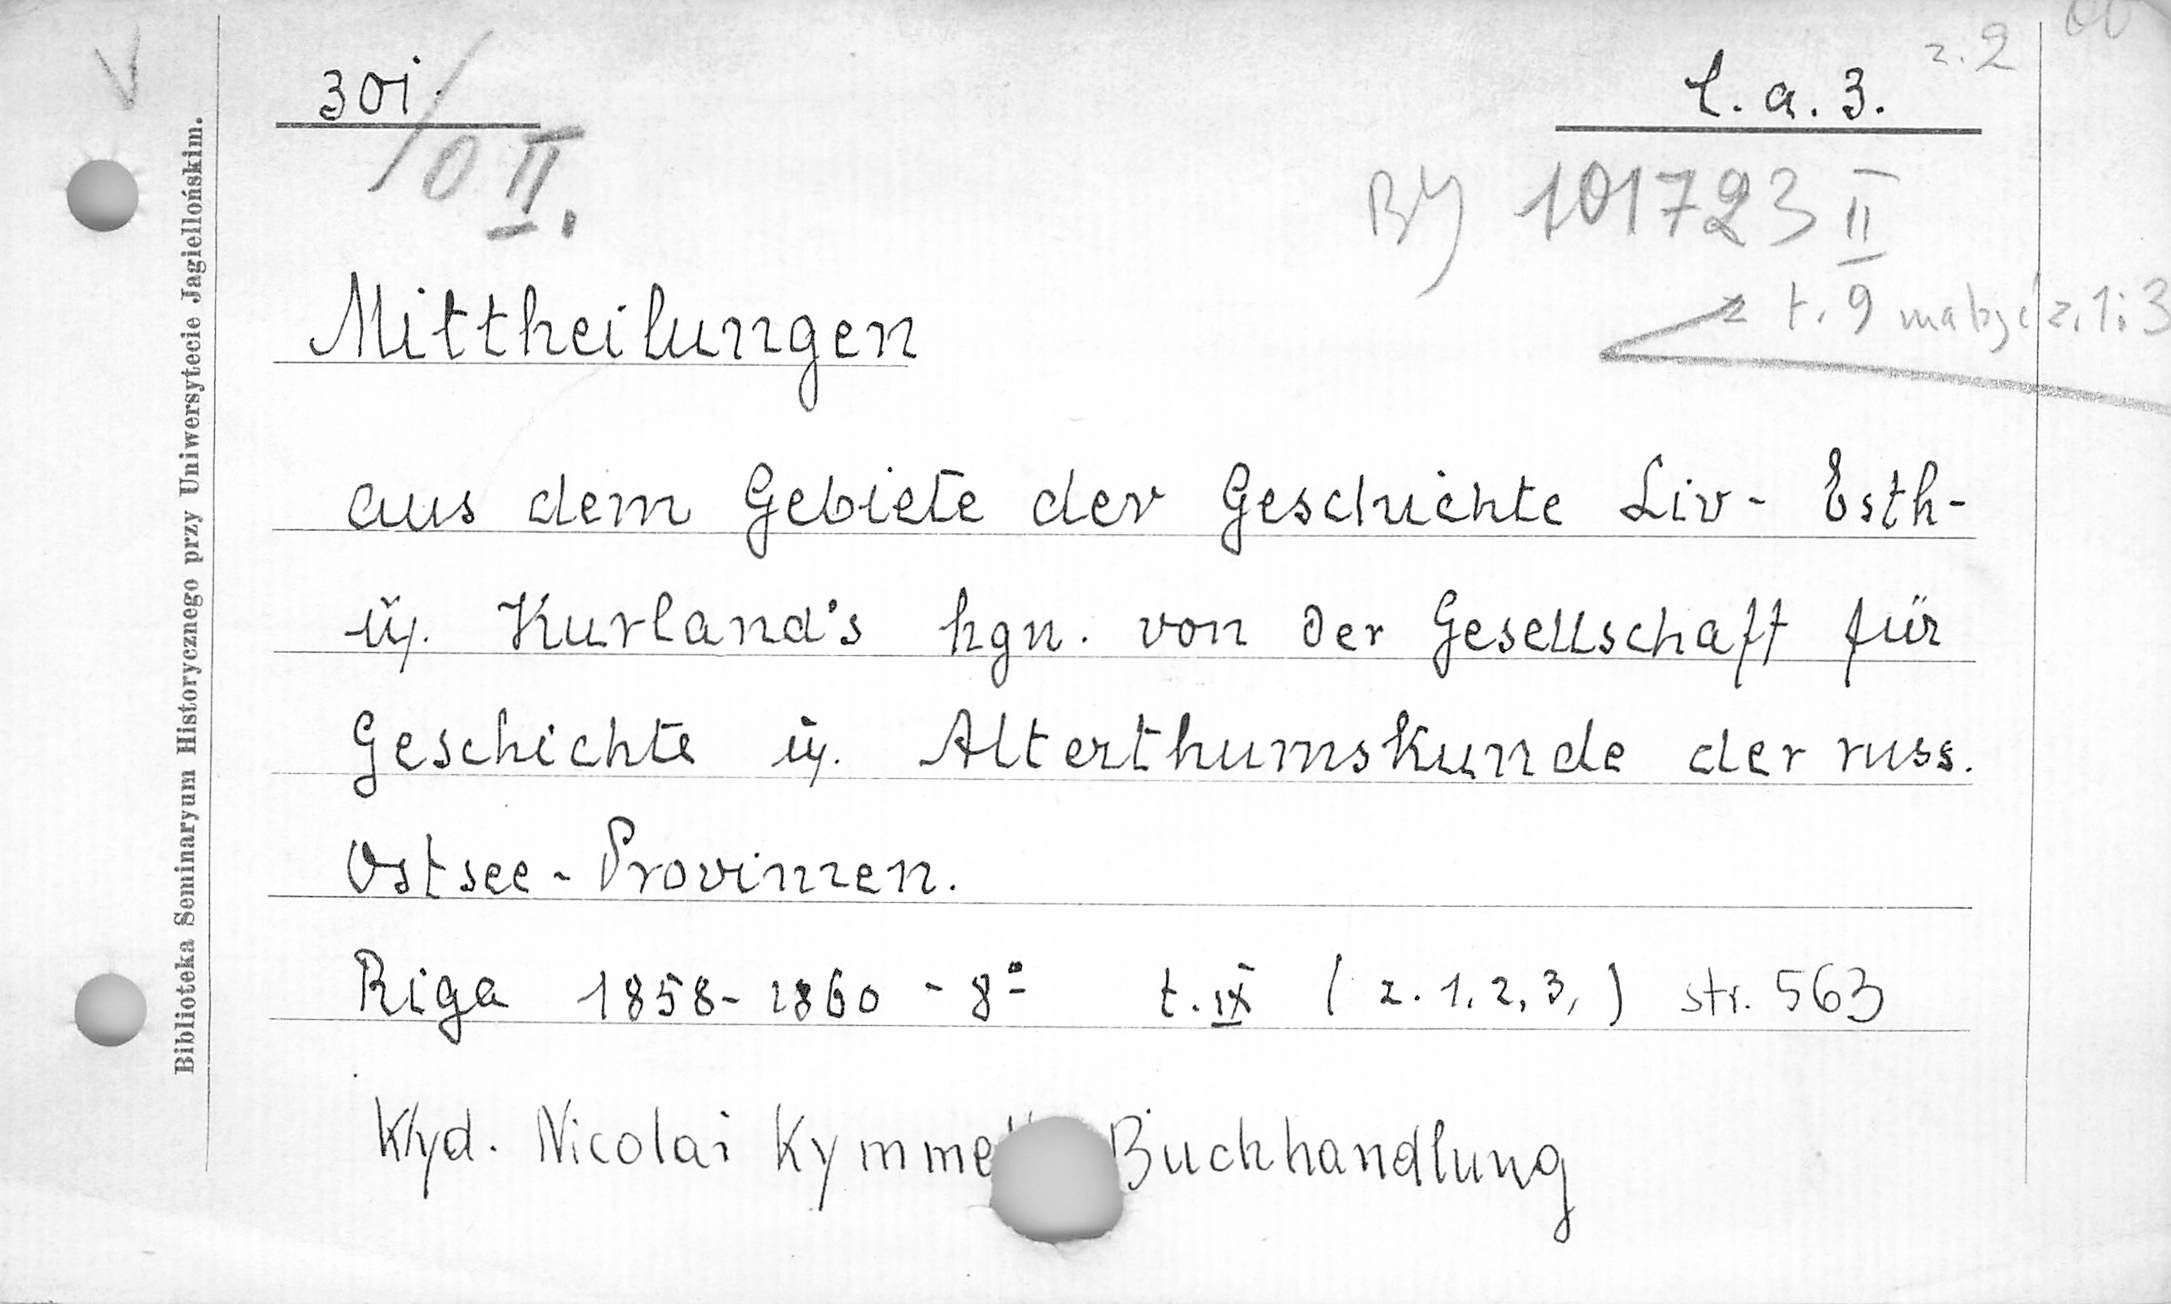 301.
l. a. 3.
z. 2
/0 II.
BJ 101723 II
z t. 9 ma być z. 1 i 3
Mittheilungen
aus dem Gebiete der Geschichte Liv- Esth-
u. Kurland's hgn. von der Gesellschaft für
Geschichte u. Alterthumskunde der russ.
Ostsee-Provinzen.
Riga 1858-1860 - 8° t. IX (z. 1, 2, 3,) str. 563
Nicolai Buchhandlung
Biblioteka Seminaryum Historycznego przy Uniwersytecie Jagiellońskim.